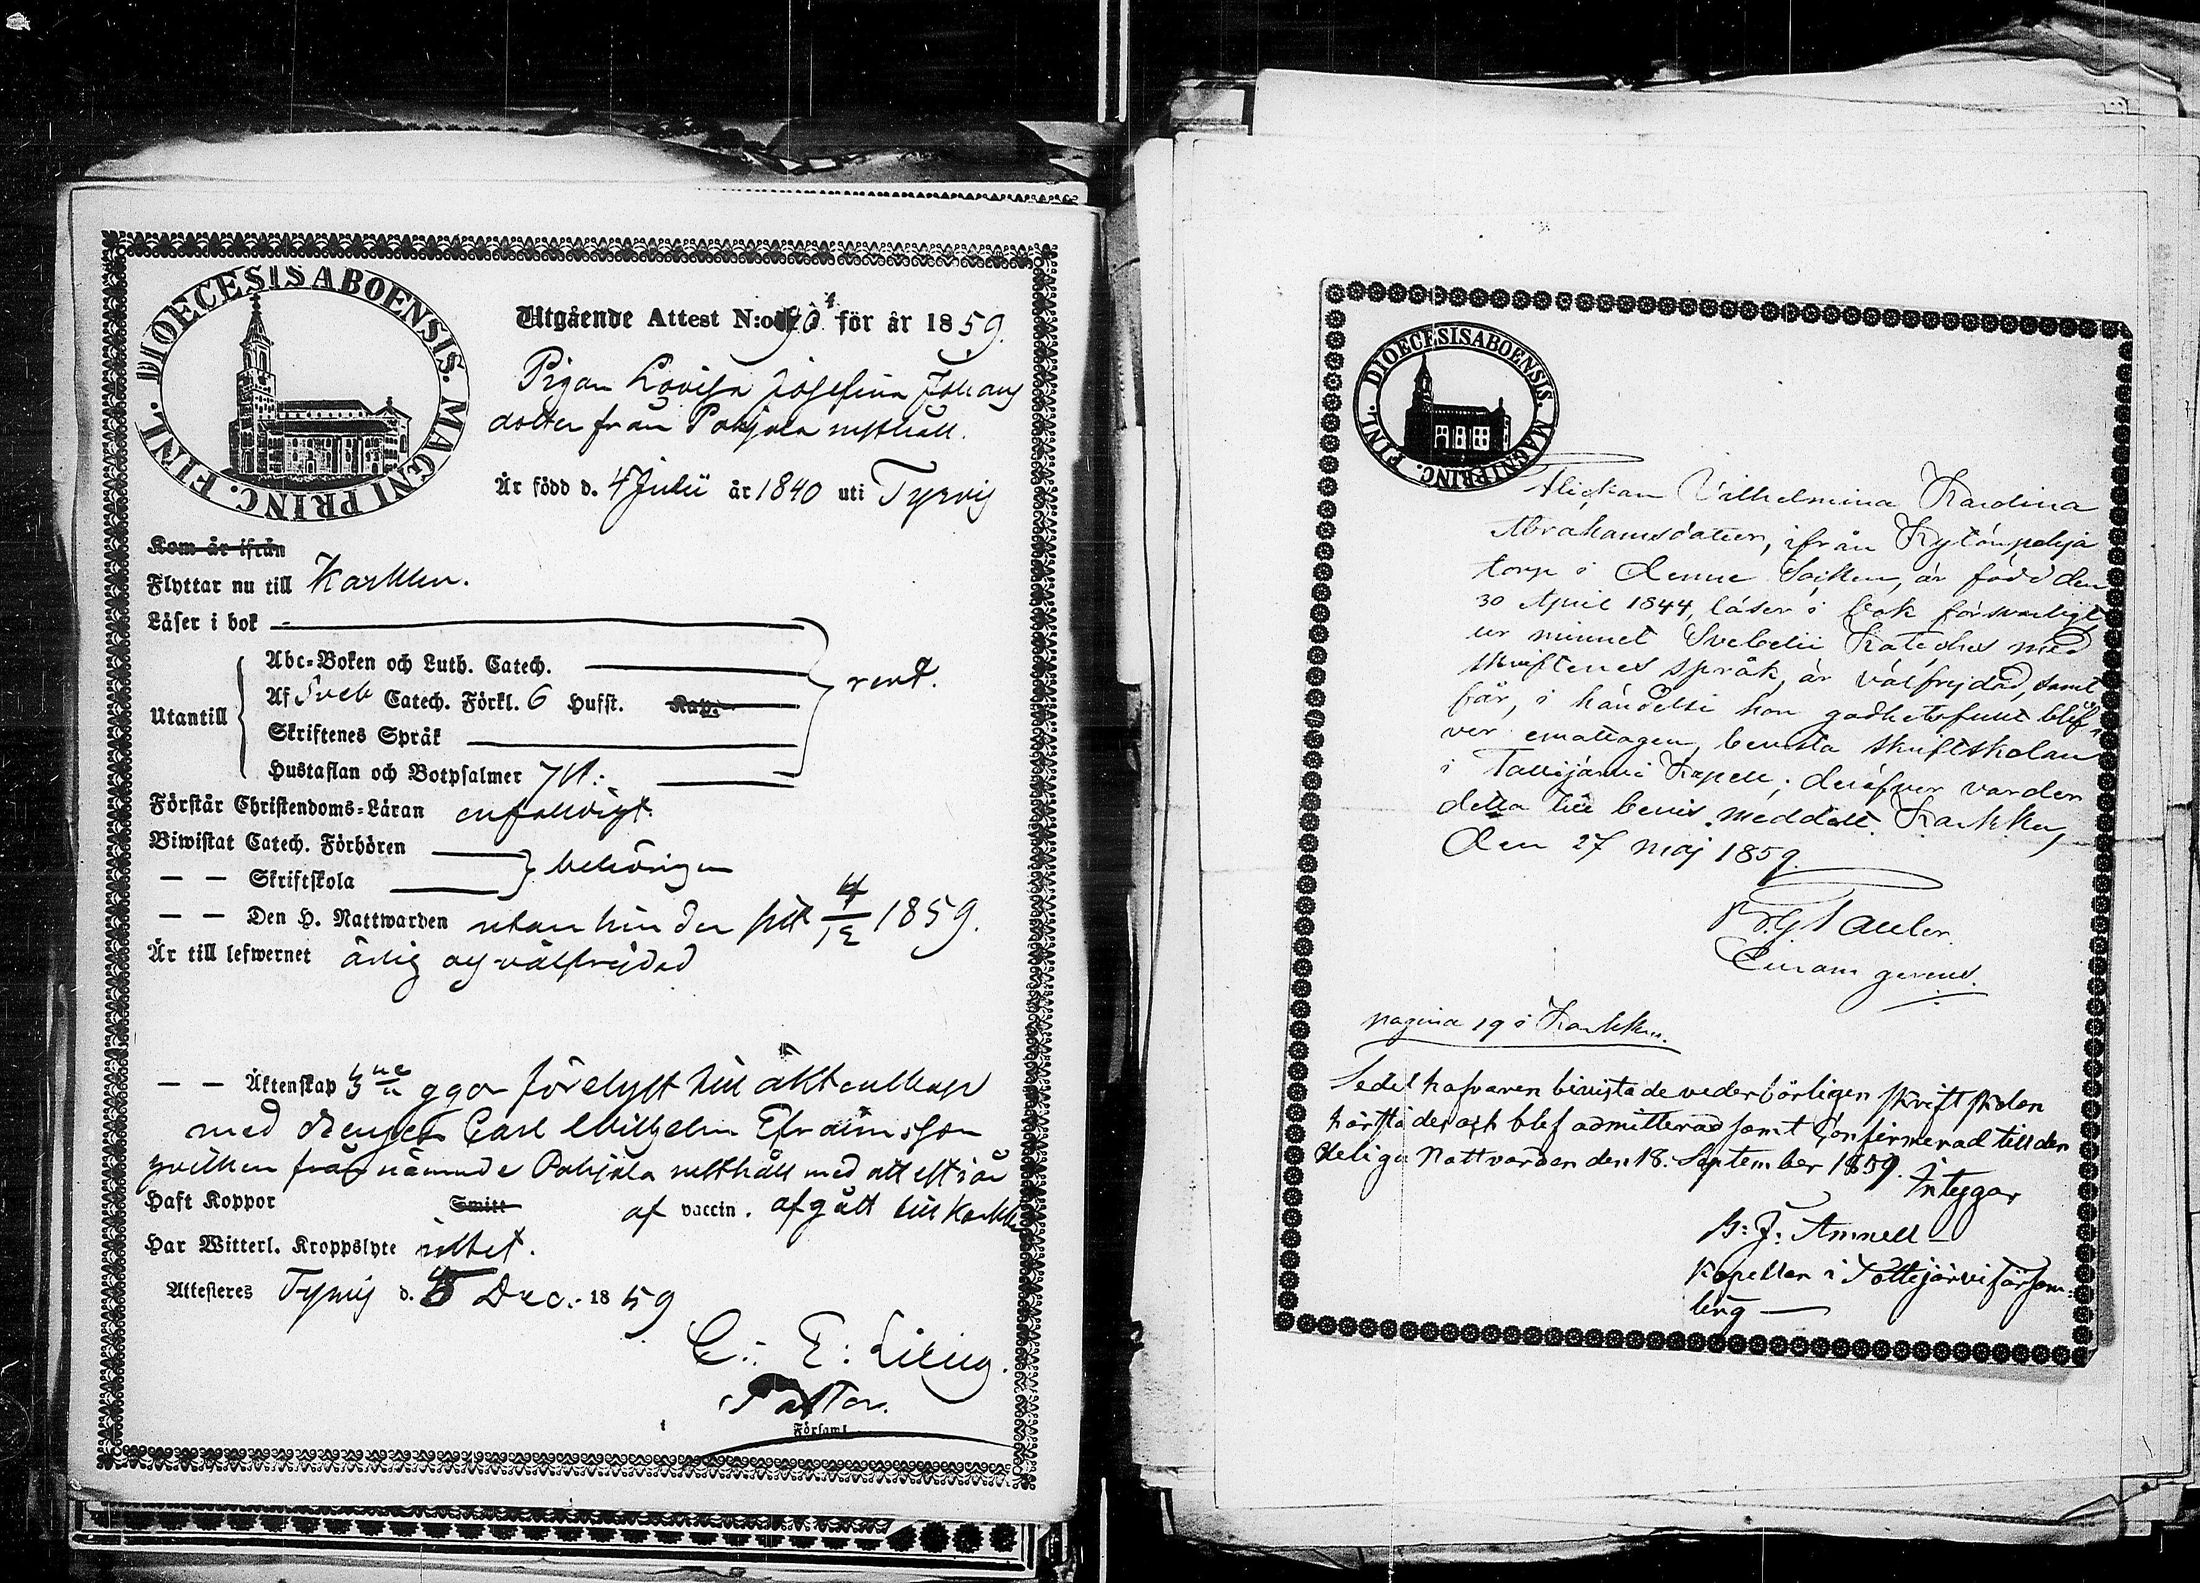 DIOECESIS ABOENSIS. MAGNI PRINC. FINL.
Utgående Attest N:o för år 1859.
Pigan Lovisa Josefina Johans
dotter från Pohjala rusthåll.
Är född d. 4 Julii år 1840 uti Tyrvis
Kom år ifrån
Flyttar nu till Karkku.
Läser i bok
Abc-Boken och Luth. Catech.
rent.
Utantill
Af Sveb Catech. Förkl. 6 Hufst. Kap.
Skriftenes Språk
Hustaflan och Botpsalmer 7 st:
Förstår Christendoms-Läran enfaldigt.
Biwistat Catech. Förhören
behörigen
— — Skriftskola
— — Den H. Nattwarden utan hinder sist 4/12 1859.
Är till lefwernet ärlig och välfrejdad
— — Äktenskap 3ne ggor förelyst till äktenskap
med drengen Carl Wilhelm Efraimsson
hvilken från nämnde Pohjala rusthåll med attest i år
Haft Koppor Smitt af vaccin. afgått till Karkku
Har Witterl. Kroppslyte intet.
Attesteres Tyrvis d. 5 Dec. 1859
C: E: Lilius.
Pastor.
Församl
DIOECESIS ABOENSIS. MAGNI PRINC. FINL.
Flickan Vilhelmina Karolina
Abrahamsdotter, ifrån Kytönpohja
torp i denne Socken, är född den
30 April 1844, läser i bok försvarligt
ur minnet Svebelii Kateches med
skriftenes språk, är välfrejdad, samt
får, i händelse hon godhetsfullt blif-
ver emottagen, bevista skriftskolan
i Tottijärvi Kapell; deröfver varder
detta till bevis meddelt. Karkku,
den 27 Maj 1859.
Curam gerens.
pagina 19 i Karkku.
Sedelhafvaren bivistade vederbörligen skriftskolan
härstädes och blef admitterad samt Confirmerad till den
Heliga Nattvarden den 18. September 1859. Intygar
B: J: Amnell
Kapellan i Tottijärvi församl-
ling